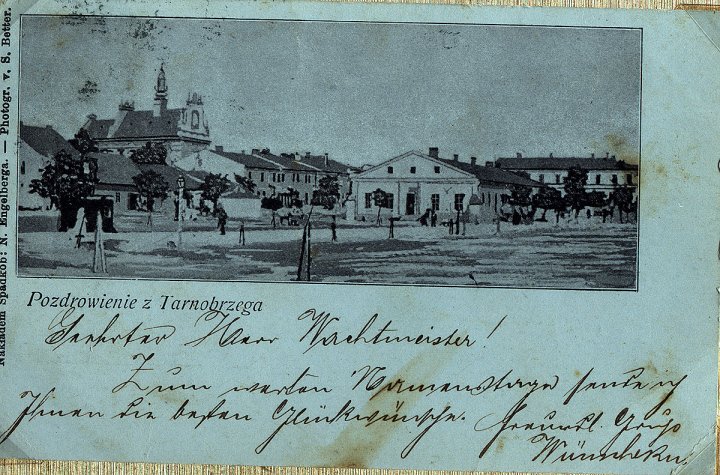 Nakładem Spadkob: N. Engelberga. — Photogr. v. S. Better.
Pozdrowienie z Tarnobrzega
Geehrter Herr Wachtmeister!
Zum werten Namenstage sende ich
Ihnen die besten Glückwünsche. Freundl. Gruß